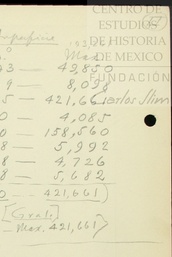 CENTRO DE
ESTUDIOS
DE HISTORIA
DE MEXICO
FUNDACIÓN
Carlos Slim
Max.
3 — 49,850
9 — 8,098
5 — 421,661
0 — 4,085
0 — 158,560
8 — 5,992
8 — 4,726
8 — 5,682
0 — 421,661)
[Gral.]
— Max. 421,661)